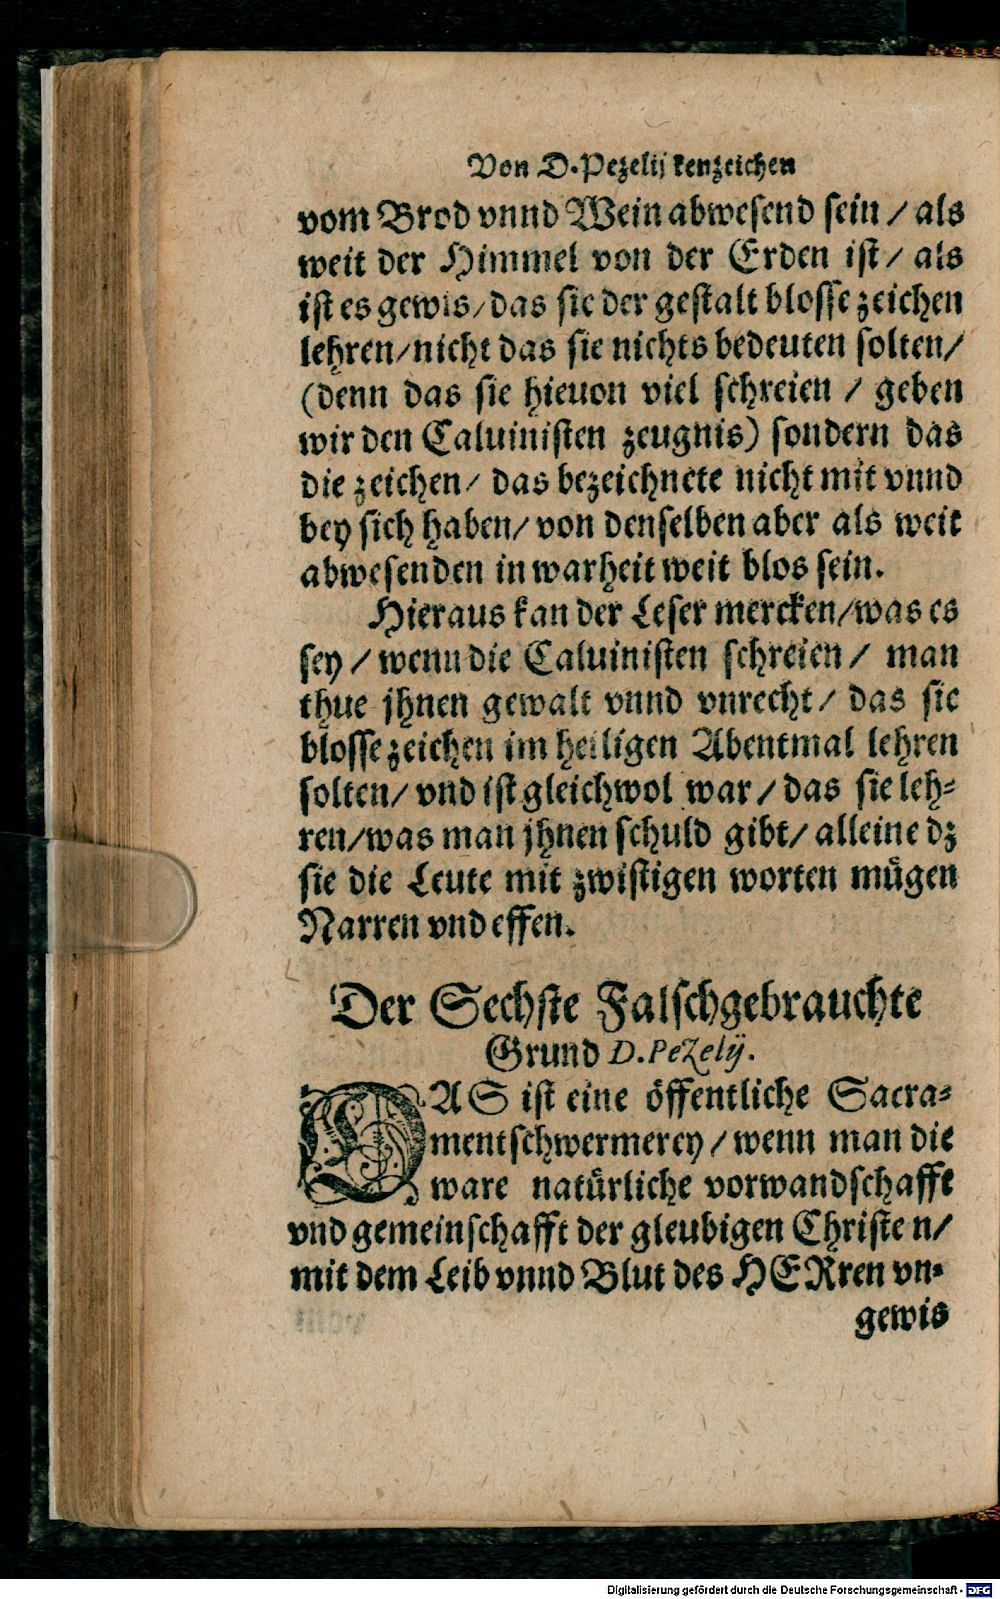 Von D. Pezelij kenzeichen
vom Brod vnnd Wein abwesend sein / als
weit der Himmel von der Erden ist / als
ist es gewis / das sie der gestalt blosse zeichen
lehren / nicht das sie nichts bedeuten solten /
(denn das sie hieuon viel schreien / geben
wir den Caluinisten zeugnis) sondern das
die zeichen / das bezeichnete nicht mit vnnd
bey sich haben / von denselben aber als weit
abwesenden in warheit weit blos sein.
Hieraus kan der Leser mercken / was es
sey / wenn die Caluinisten schreien / man
thue jhnen gewalt vnnd vnrecht / das sie
blosse zeichen im heiligen Abentmal lehren
solten / vnd ist gleichwol war / das sie leh-
ren / was man jhnen schuld gibt / alleine dz
sie die Leute mit zwistigen worten mügen
Narren vnd effen.
Der Sechste Falschgebrauchte
Grund D. Pezelij.
DAS ist eine öffentliche Sacra-
mentschwermerey / wenn man die
ware natürliche vorwandschafft
vnd gemeinschafft der gleubigen Christen /
mit dem Leib vnnd Blut des HERren vn-
gewis
Digitalisierung gefördert durch die Deutsche Forschungsgemeinschaft - DFG